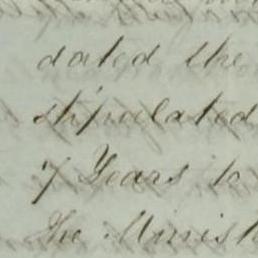 dated the
stipulated
7 Years to
The Minist